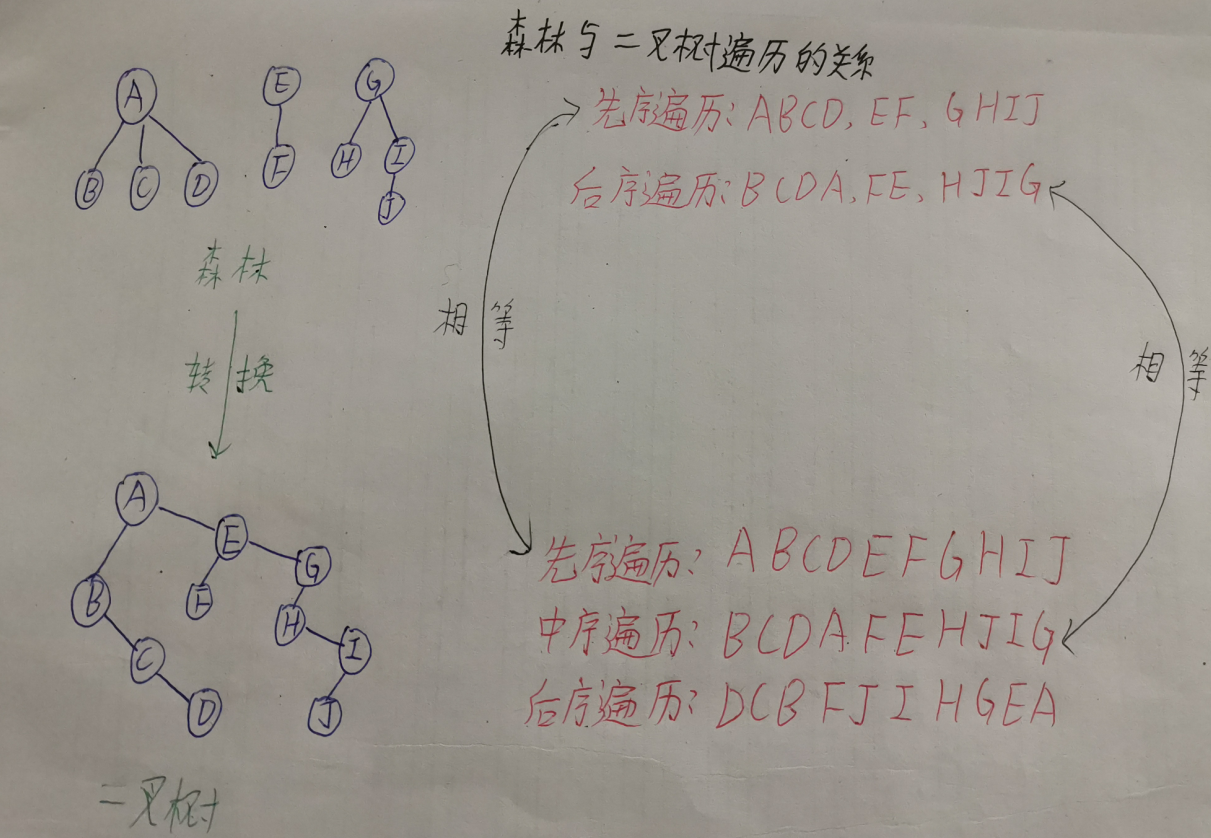 森林与二叉树遍历的关系
A
E
G
B
C
D
F
H
I
J
先序遍历: ABCD, EF, GHIJ
后序遍历: BCDA, FE, HJIG
森林
相等
转换
相等
A
E
G
B
F
H
C
I
D
J
先序遍历: ABCDEFGHIJ
中序遍历: BCDAFEHJIG
后序遍历: DCBFJIHGEA
二叉树